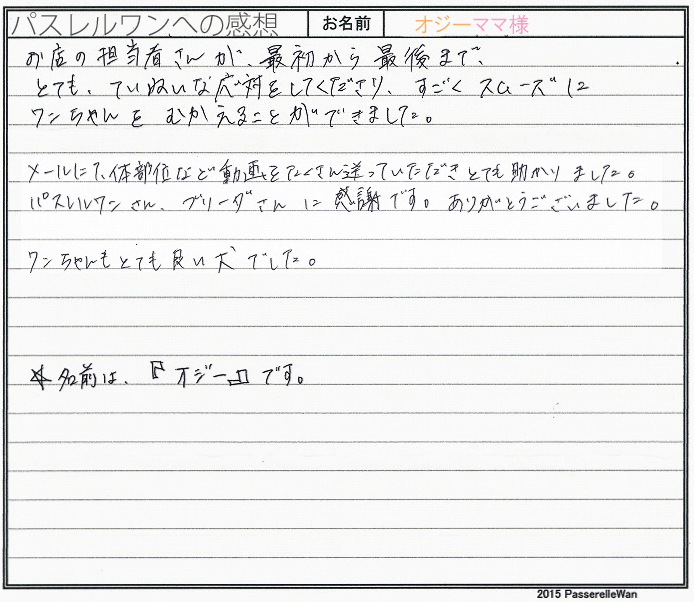 パスレルワンへの感想 お名前 オジーママ様
お店の担当者さんが、最初から最後まで、
とても、ていねいな応対をしてくださり、すごくスムーズに
ワンちゃんをむかえることができました。
メールにて、体部位など動画をたくさん送っていただきとても助かりました。
パスレルワンさん、ブリーダさんに感謝です。ありがとうございました。
ワンちゃんもとても良い犬でした。
★名前は、『オジー』です。
2015 PasserelleWan